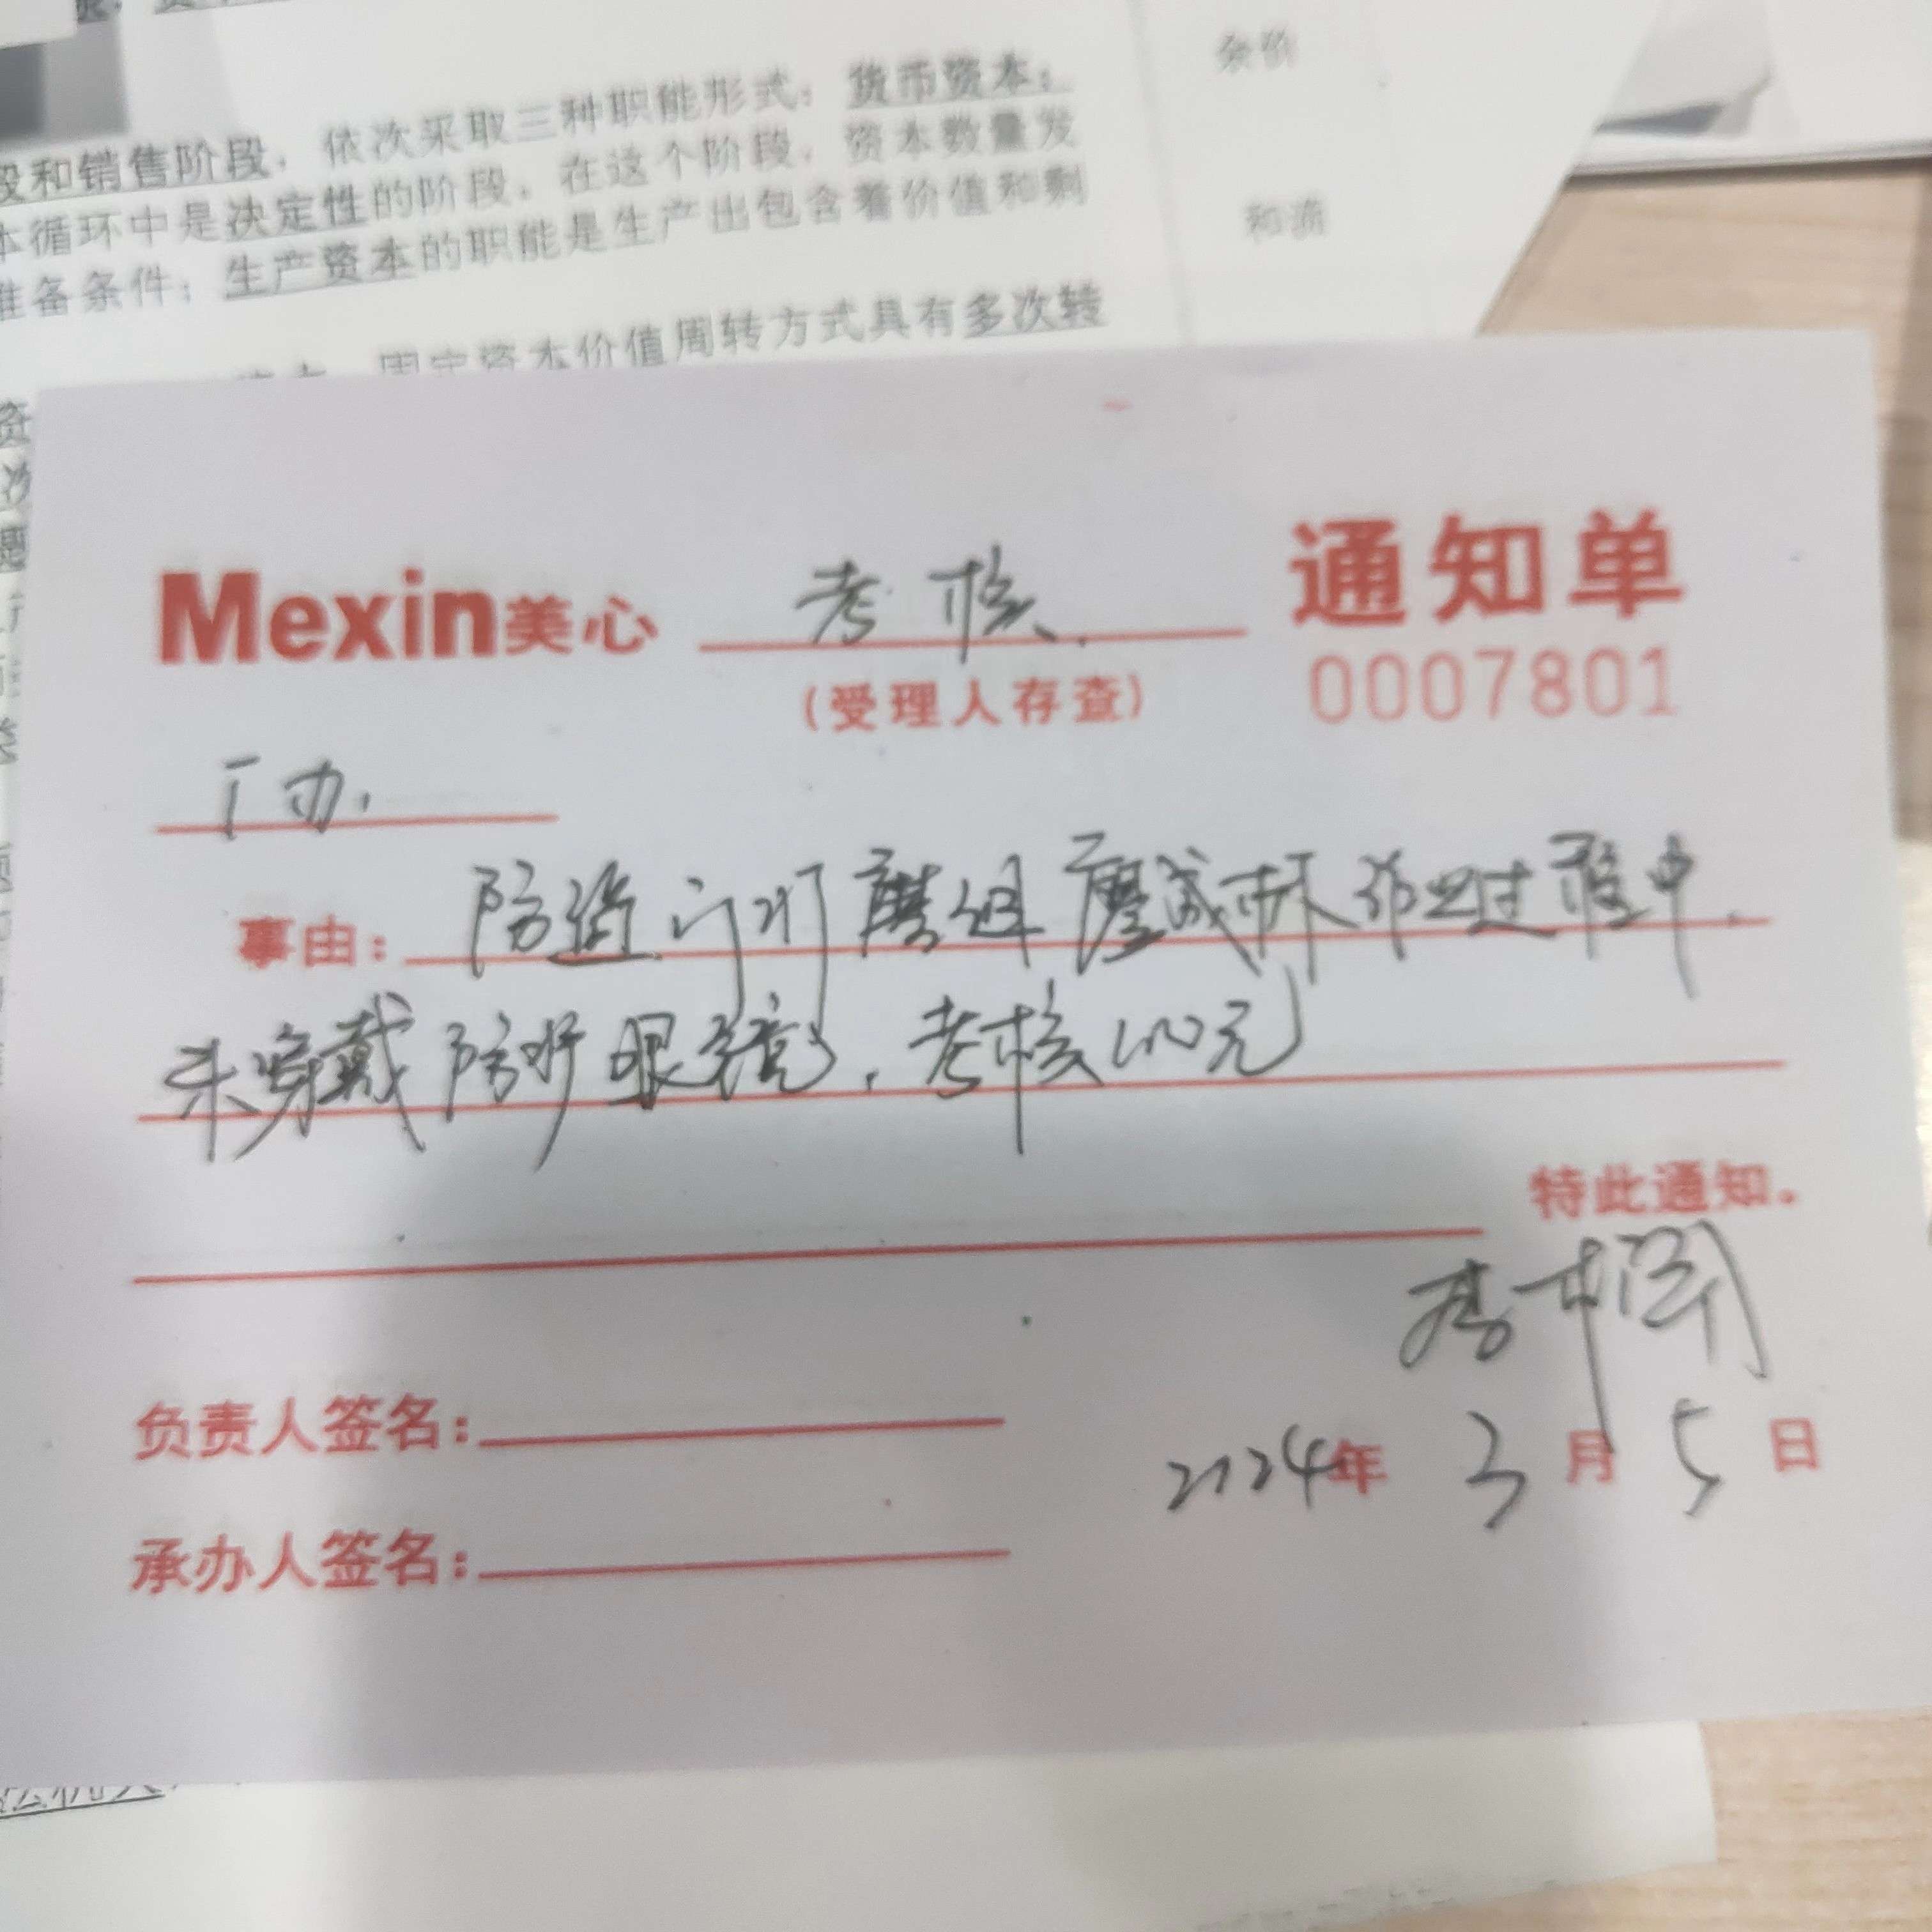 杂价
段和销售阶段，依次采取三种职能形式：货币资本：
本循环中是决定性的阶段，在这个阶段，资本数量发
和流
准备条件；生产资本的职能是生产出包含着价值和剩
固定资本价值周转方式具有多次转
资
Mexin美心 考核 通知单
(受理人存查) 0007801
厂办，
事由：防盗门打磨组 成林 作业过程中
未穿戴防护眼镜，考核100元
特此通知.
负责人签名：
2024年 3月 5日
承办人签名：